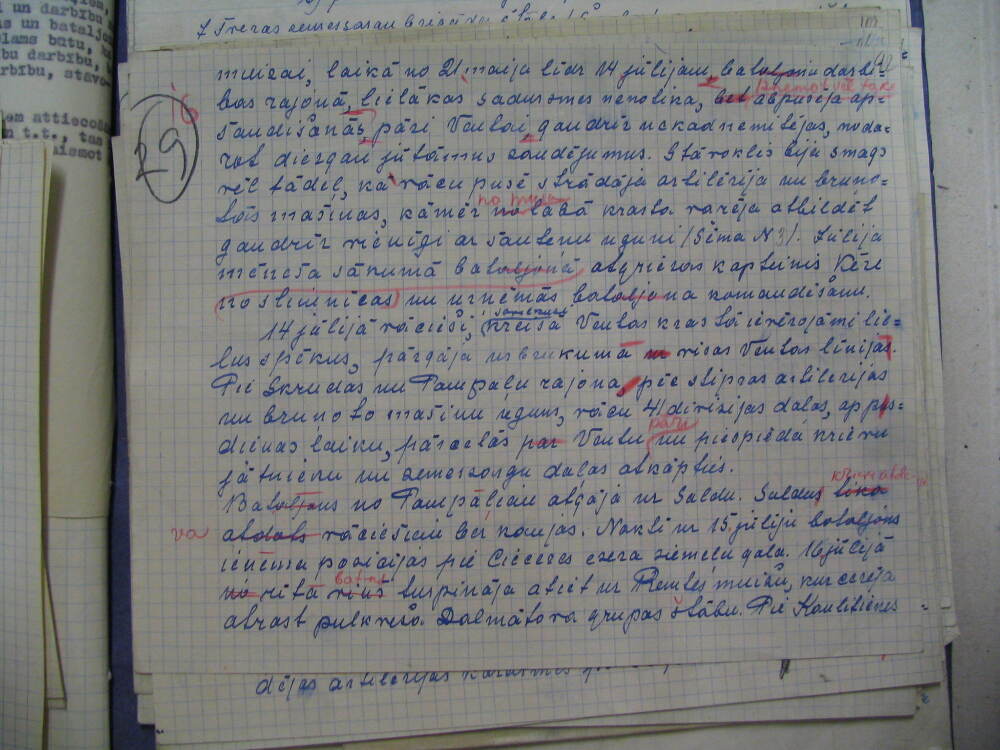 7. Tveras zemessargu brigādes štābs
i un darbību,
s un bataljo
lams būtu,
bu darbību,
rbību, stāvo
em attieco
n t.t., tas
aismot
29
muižai, laikā no 21 maija līdz 14 jūlijam, bataljona darbī=
bas rajonā, lielākas sadursmes nenotika, bet abpusēja ap=
šaudīšanās pāri Ventai, gandrīz nekad nemitējas, noda=
rot diezgan jūtamus zaudējumus. Stāvoklis bija smags
vēl tādēļ, ka vācu pusē strādāja artilērija un bruņo=
tās mašinas, kāmēr no labā krasta varēja atbildēt
no mūsu
gandrīz vienīgi ar šautenu uguni (Sēma N3). Jūlija
mēneša sākumā bataljonā atgriezās kapteinis Ķēze
no slimnīcas un uzņēmās bataljona komandēšanu.
14 jūlijā vācieši, kreisā Ventas krastā ievērojami lie=
lus spēkus, pārgāja uzbrukumā uz visas Ventas līnijas.
Pie Skrudas un Pampaļu rajonā, pēc stipras artilerijas
un bruņoto mašinu uguns, vācu 41 divizijas daļas, ap pus=
dienas laiku, pārcēlās par Ventu un piespieda krievu
pāri
jātnieku un zemessargu daļas atkāpties.
Bataljons no Pampaļiem atgāja uz Saldu. Saldus tika
va atdots vāciešiem bez kaujas. Naktī uz 15 jūliju bataljons
ieņēma pozicijas pie Cieceres ezera ziemeļu gala. 16 jūlijā
no rītā viņš turpināja atiet uz Remtes muižu, kur cerēja
bat-ns
atrast pulkveža Dalmatova grupas štābu. Pie Kaulitienes =
dējas artilerijas